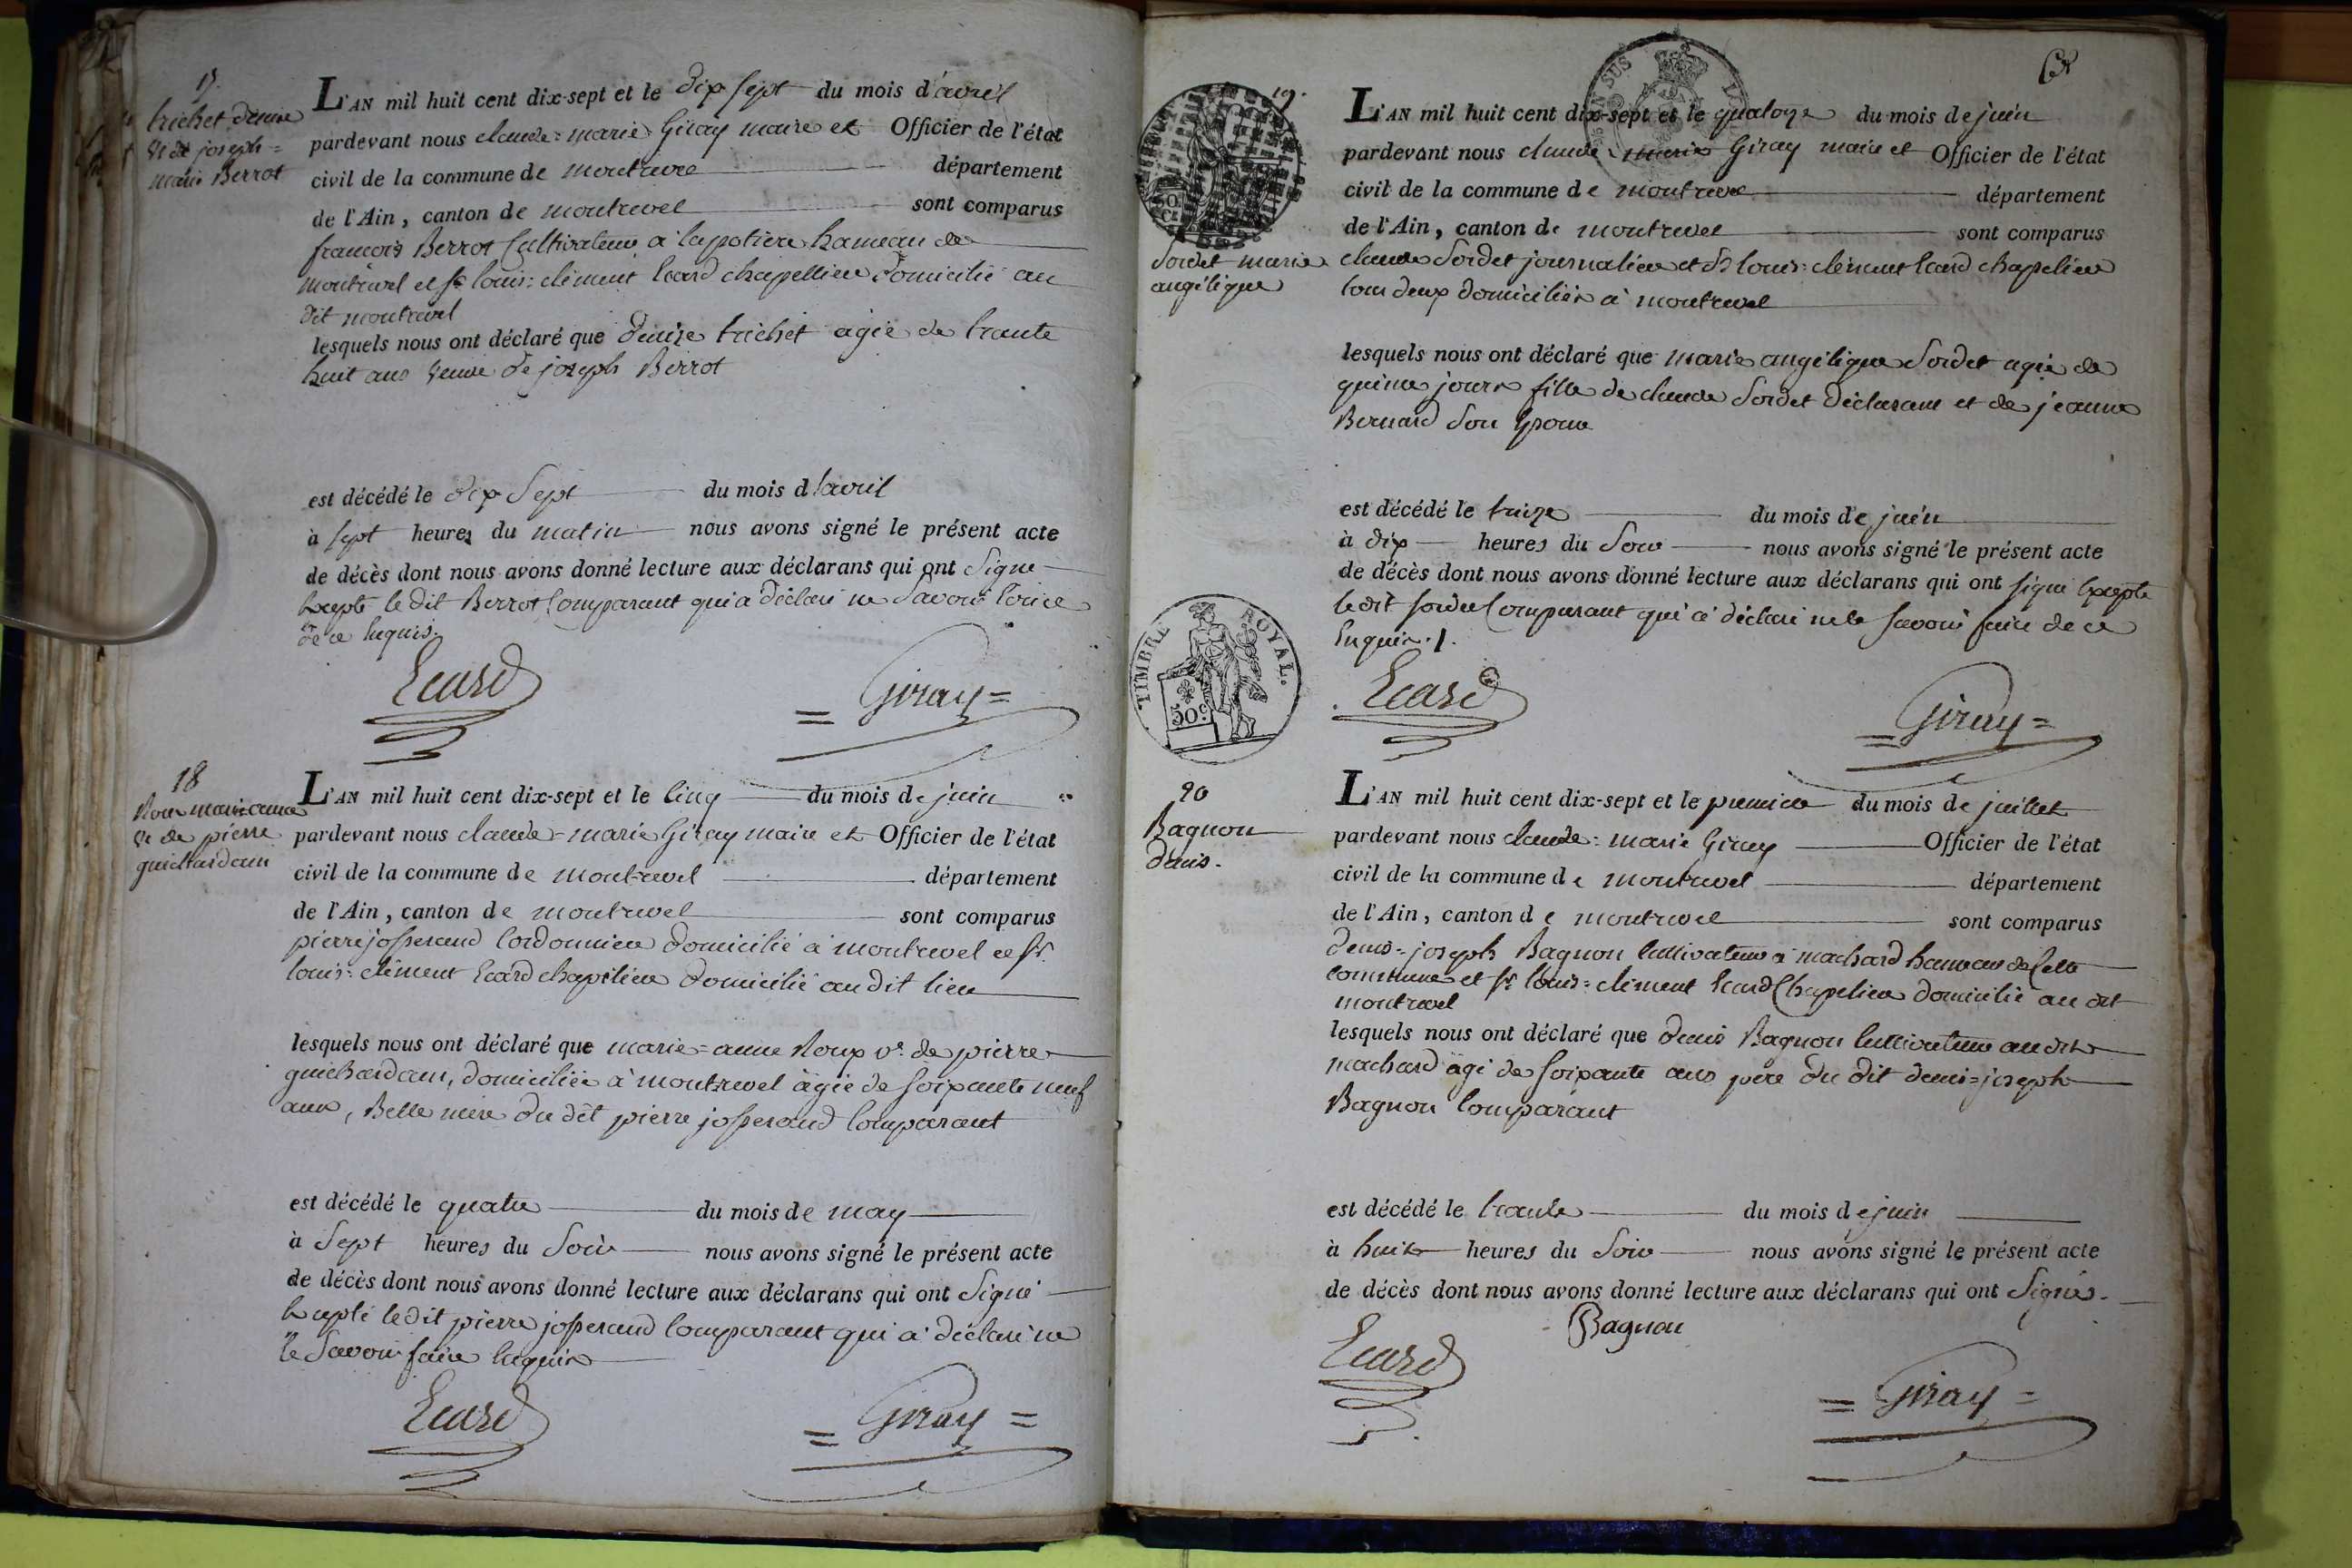 17.
trichet denise
ve de joseph=
marie Berrot
L'AN mil huit cent dix-sept et le dix sept du mois d'avril
pardevant nous claude=marie Giray maire et Officier de l'état
civil de la commune de montrevel département
de l'Ain, canton de montrevel sont comparus
francois Berrot Cultivateur a lapotiere hameau de
montrevel et sr louis=clement Ecard chapellier domicilié au
dit montrevel
lesquels nous ont déclaré que denize trichet agée de trante
huit ans veuve de joseph Berrot
est décédé le dix Sept du mois d'avril
à sept heures du matin nous avons signé le présent acte
de décès dont nous avons donné lecture aux déclarans qui ont Signé
Excepté le dit Berrot Comparant qui a déclaré ne Savoir Ecrire
de ce Enquis
Ecard
=Giray=
18
Roux marie anne
ve de pierre
guichardam
L'AN mil huit cent dix-sept et le Cinq du mois de juin
pardevant nous claude=marie Giray maire et Officier de l'état
civil de la commune de montrevel département
de l'Ain, canton de montrevel sont comparus
pierre josserand Cordonnier domicilié a montrevel et sr.
louis=clement Ecard chapelier domicilié au dit lieu
lesquels nous ont déclaré que marie=anne Roux ve. de pierre
guichardam, domiciliée à montrevel agée de soixante neuf
ans, Belle mere du dit pierre josserand Comparant
est décédé le quatre du mois de may
à Sept heures du Soir nous avons signé le présent acte
de décès dont nous avons donné lecture aux déclarans qui ont Signé
Excepté le dit pierre josserand Comparant qui a déclaré ne
le Savoir faire Enquis
Ecard
=Giray=
19.
Sordet marie
angelique
L'AN mil huit cent dix-sept et le quatorze du mois de juin
pardevant nous claude=marie Giray maire et Officier de l'état
civil de la commune de montrevel département
de l'Ain, canton de montrevel sont comparus
claude Sordet journalier et Sr louis=clement Ecard chapelier
tous deux domiciliés a montrevel
lesquels nous ont déclaré que marie angelique Sordet agée de
quinze jours fille de claude Sordet déclarant et de jeanne
Bernard Son Epouse
est décédé le treize du mois de juin
à dix heures du Soir nous avons signé le présent acte
de décès dont nous avons donné lecture aux déclarans qui ont signé Excepté
le dit Sordet Comparant qui a déclaré ne le Savoir faire de ce
Enquis./.
TIMBRE ROYAL.
50c
Ecard
=Giray=
20
Bagnon
denis.
L'AN mil huit cent dix-sept et le premier du mois de juillet
pardevant nous claude=marie Giray Officier de l'état
civil de la commune de montrevel département
de l'Ain, canton de montrevel sont comparus
denis=joseph Bagnon Cultivateur a machard hameau de Cette
commune et sr louis=clement Ecard Chapelier domicilié au dit
montrevel
lesquels nous ont déclaré que denis Bagnon Cultivateur au dit
machard agé de soixante ans pere du dit denis=joseph
Bagnon Comparant
est décédé le trante du mois de juin
à huit heures du Soir nous avons signé le présent acte
de décès dont nous avons donné lecture aux déclarans qui ont Signés.
Bagnon
Ecard
=Giray=